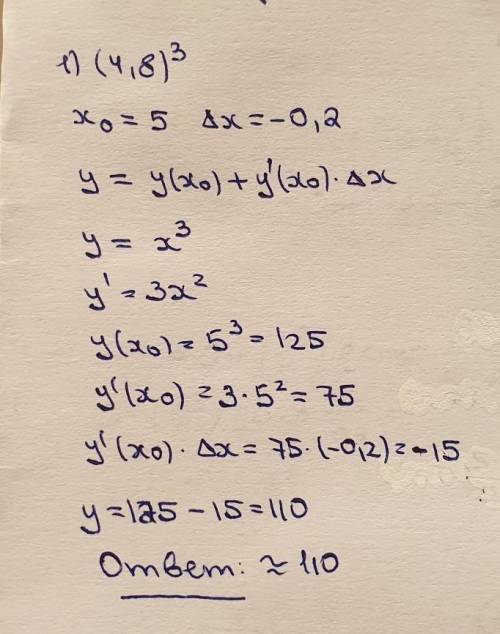 1) (4,8)³
x₀ = 5 Δx = -0,2
y = y(x₀) + y'(x₀) · Δx
y = x³
y' = 3x²
y(x₀) = 5³ = 125
y'(x₀) = 3 · 5² = 75
y'(x₀) · Δx = 75 · (-0,2) = -15
y = 125 - 15 = 110
Ответ: ≈ 110